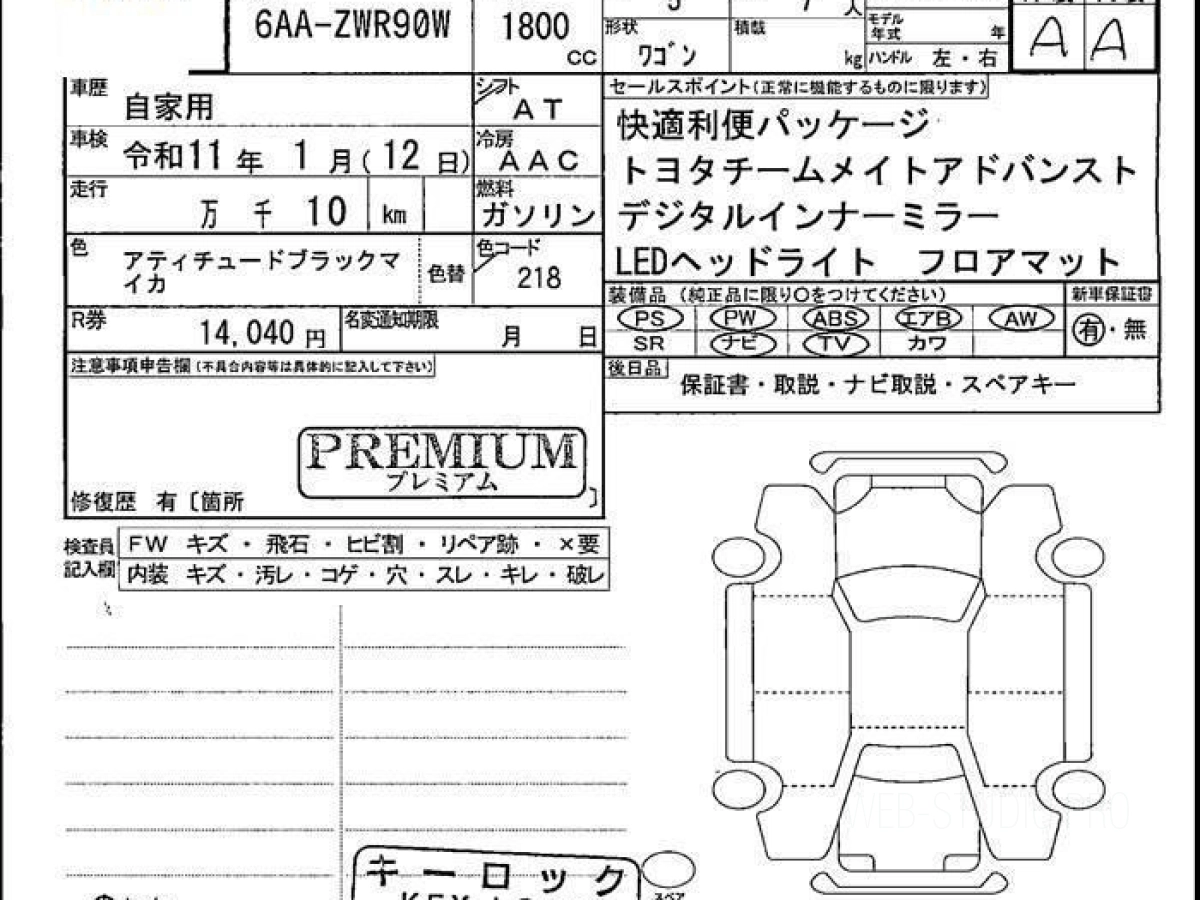 6AA-ZWR90W
1800
cc
形状
ワゴン
積載
kg
人
モデル
年式
年
ハンドル 左・右
A A
車歴
自家用
シフト
AT
車検
令和11年 1月(12日)
冷房
AAC
走行
万 千 10 km
燃料
ガソリン
色
アティチュードブラックマ
イカ
色替
色コード
218
R券
14,040円
名変通知期限
月 日
注意事項申告欄(不具合内容等は具体的に記入して下さい)
PREMIUM
プレミアム
修復歴 有〔箇所 〕
セールスポイント(正常に機能するものに限ります)
快適利便パッケージ
トヨタチームメイトアドバンスト
デジタルインナーミラー
LEDヘッドライト フロアマット
装備品 (純正品に限り○をつけてください)
新車保証書
PS PW ABS エアB AW
SR ナビ TV カワ
有・無
後日品
保証書・取説・ナビ取説・スペアキー
検査員
記入欄
FW キズ・飛石・ヒビ割・リペア跡・×要
内装 キズ・汚レ・コゲ・穴・スレ・キレ・破レ
キーロック
スペア
WEB-STUDIO.PRO